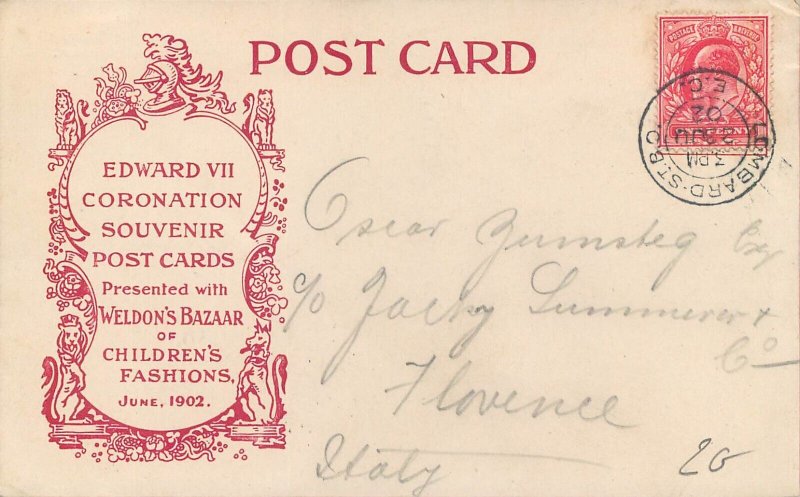 POST CARD
EDWARD VII
CORONATION
SOUVENIR
POST CARDS
Presented with
WELDON'S BAZAAR
OF
CHILDREN'S
FASHIONS,
JUNE, 1902.
POSTAGE REVENUE
LOMBARD·ST.B.O
E.C.
02
3 PM
Oscar Zumsteg Esq
c/o Jacky Summerer &
Co
Florence
Italy
20